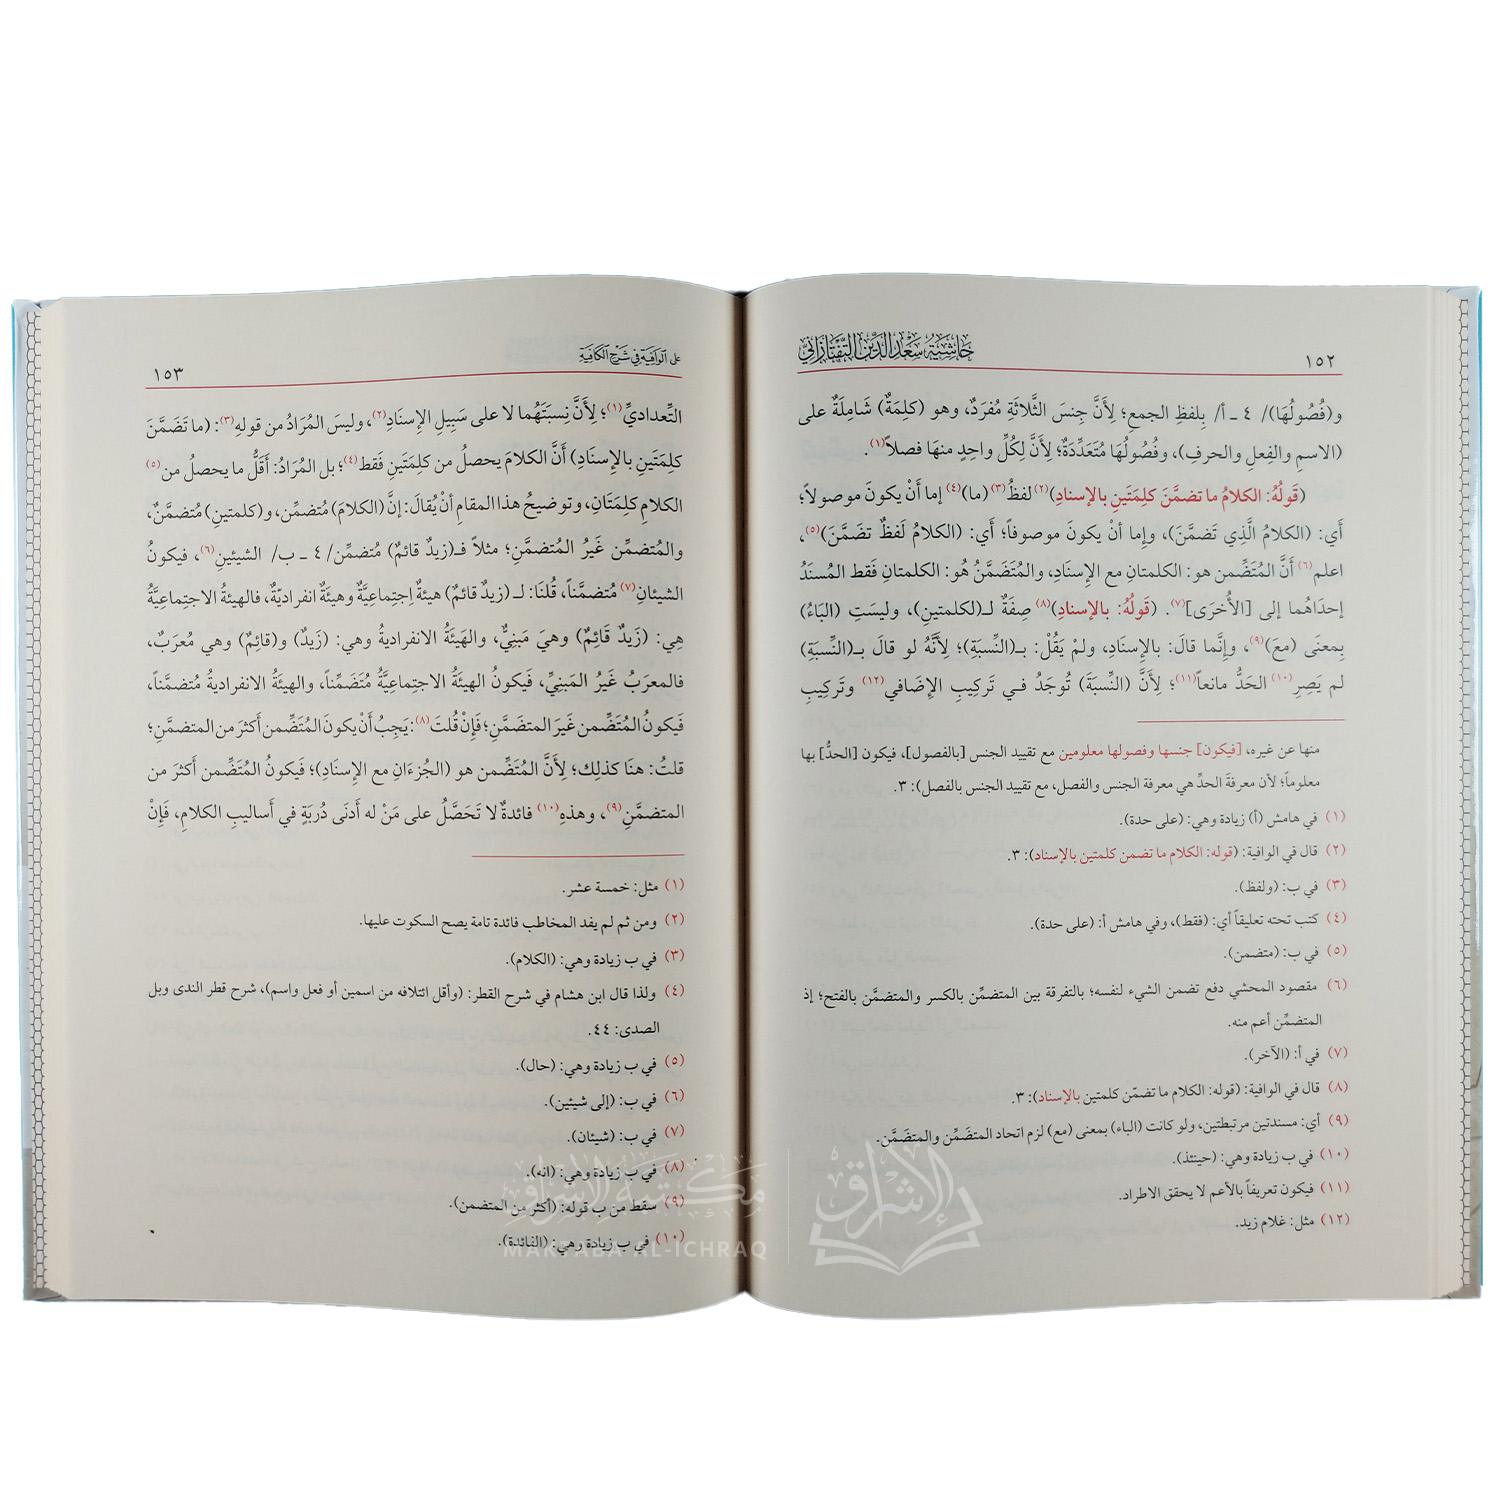 ١٥٢
حاشية سعد الدين التفتازاني
و(فُصُولُهَا)/ ٤ ـ أ/ بِلفظِ الجمعِ؛ لِأَنَّ جِنسَ الثَّلاثَةِ مُفرَدٌ، وهو (كلِمَةٌ) شَامِلَةٌ على
(الاسمِ والفِعلِ والحرفِ)، وفُصُولُهَا مُتَعَدِّدَةٌ؛ لِأَنَّ لِكُلِّ واحِدٍ منهَا فصلاً(١).
(قَولُهُ: الكلامُ ما تضمَّنَ كلِمَتَينِ بالإسنادِ)(٢) لفظُ(٣) (ما)(٤) إما أَنْ يكونَ موصولاً؛
أَي: (الكلامُ الَّذِي تَضمَّنَ)، وإما أنْ يكونَ موصوفاً؛ أَي: (الكلامُ لَفظٌ تضمَّنَ)(٥)،
اعلم(٦) أَنَّ المُتَضَّمن هو: الكلمتانِ مع الإِسنادِ، والمُتَضمَّنُ هُو: الكلمتان فَقط المُسنَدُ
إحدَاهُما إلى [الأُخرَى](٧). (قَولُهُ: بالإِسنادِ)(٨) صِفَةٌ لـ(لكلمتينِ)، وليسَتِ (البَاءُ)
بِمعنَى (معَ)(٩)، وإنَّما قالَ: بالإسنادِ، ولمْ يَقُلْ: بـ(النِّسبَةِ)؛ لِأَنَّهُ لو قالَ بـ(النِّسبَةِ)
لم يَصِرِ(١٠) الحَدُّ مانعاً(١١)؛ لِأَنَّ (النِّسبَةَ) تُوجَدُ فـي تَركِيبِ الإضَافي(١٢) وتَركِيبِ
منها عن غيره، [فيكون] جنسها وفصولها معلومين مع تقييد الجنس [بالفصول]، فيكون [الحدُّ] بها
معلوماً؛ لأن معرفةَ الحدِّ هي معرفة الجنس والفصل، مع تقييد الجنس بالفصل): ٣.
(١) في هامش (أ) زيادة وهي: (على حدة).
(٢) قال في الوافية: (قوله: الكلام ما تضمن كلمتين بالإسناد): ٣.
(٣) في ب: (ولفظ).
(٤) كتب تحته تعليقاً أي: (فقط)،وفي هامش أ: (على حدة).
(٥) في ب: (متضمن).
(٦) مقصود المحشي دفع تضمن الشيء لنفسه؛ بالتفرقة بين المتضمِّن بالكسر والمتضمَّن بالفتح؛ إذ
المتضمِّن أعم منه.
(٧) في أ: (الآخر).
(٨) قال في الوافية: (قوله: الكلام ما تضمّن كلمتين بالإسناد): ٣.
(٩) أي: مسندتين مرتبطتين، ولو كانت (الباء) بمعنى (مع) لزم اتحاد المتضمِّن والمتضمَّن.
(١٠) في ب زيادة وهي: (حينئذ).
(١١) فيكون تعريفاً بالأعم لا يحقق الاطراد.
(١٢) مثل: غلام زيد.
على الوافية في شرح الكافية
١٥٣
التِّعدادِيِّ(١)؛ لِأَنَّ نِسبَتَهُما لا على سَبِيلِ الإِسنَادِ(٢)، وليسَ المُرَادُ من قولهِ(٣): (ما تَضَمَّنَ
كلِمَتَينِ بالإِسنَادِ) أَنَّ الكلامَ يحصلُ من كلِمَتَينِ فَقط(٤)؛ بل المُرَادُ: أَقَلُّ ما يحصلُ من(٥)
الكلامِ كلِمَتَانِ، وتوضيحُ هذا المقامِ أنْ يُقالَ: إنَّ (الكلامَ) مُتضمِّن، و(كلمتينِ) مُتضمَّنٌ،
والمُتضمِّن غَيرُ المُتضمَّنِ؛ مثلاً فـ(زيدٌ قائمٌ) مُتضمِّن/ ٤ ـ ب/ الشيئينِ(٦)، فيكونُ
الشيئانِ(٧) مُتضمَّناً، قُلنَا: لـ (زيدٌ قائمٌ) هيئةٌ اِجتِماعِيَّةٌ وهيئةٌ انفراديّةٌ، فالهيئةُ الاجتِماعِيَّةُ
هِي: (زَيدٌ قَائِمٌ) وهيَ مَبنِيٌّ، والهَيَئَةُ الانفراديةُ وهي: (زَيدٌ) و(قائِمٌ) وهي مُعرَبٌ،
فالمعرَبُ غَيرُ المَبنِيِّ، فَيكونُ الهيَئَةُ الاجتِماعِيَّةُ مُتَضَمِّناً، والهيئةُ الانفراديةُ مُتضمَّناً،
فَيكونُ المُتَضِّمن غيرَ المتضَمَّنِ؛ فإنْ قُلتَ(٨): يَجِبُ أنْ يكونَ المُتَضِّمن أكثرَ من المتضمنِ؛
قلتُ: هنَا كذلِك؛ لِأَنَّ المُتَضِّمن هو (الجُزءَانِ مع الإِسنَادِ)؛ فَيكونُ المُتَضِّمن أكثرَ من
المتضمَّنِ(٩)، وهذهِ(١٠) فائدةٌ لا تَحَصَّلُ على مَنْ له أدنَى دُربَةٍ في أساليبِ الكلامِ، فَإنْ
(١) مثل: خمسة عشر.
(٢) ومن ثم لم يفد المخاطب فائدة تامة يصح السكوت عليها.
(٣) في ب زيادة وهي: (الكلام).
(٤) ولذا قال ابن هشام في شرح القطر: (وأقل ائتلافه من اسمين أو فعل واسم)، شرح قطر الندى وبل
الصدى: ٤٤.
(٥) في ب زيادة وهي: (حال).
(٦) في ب: (إلى شيئين).
(٧) في ب: (شيئان).
(٨) في ب زيادة وهي: (انه).
(٩) سقط من ب قوله: (أكثر من المتضمن).
(١٠) في ب زيادة وهي: (الفائدة).
مكتبة الإشراق
MAKTABA AL-ICHRAQ
الإشراق